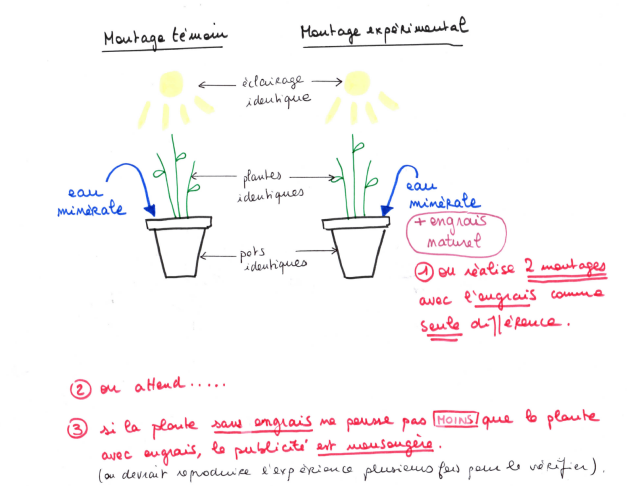 Montage témoin
Montage expérimental
éclairage
identique
plantes
identiques
eau
minérale
eau
minérale
+ engrais
naturel
pots
identiques
① on réalise 2 montages
avec l'engrais comme
seule différence.
② on attend.....
③ si la plante sans engrais ne pousse pas MOINS que la plante
avec engrais, la publicité est mensongère.
(on devrait reproduire l'expérience plusieurs fois pour le vérifier).